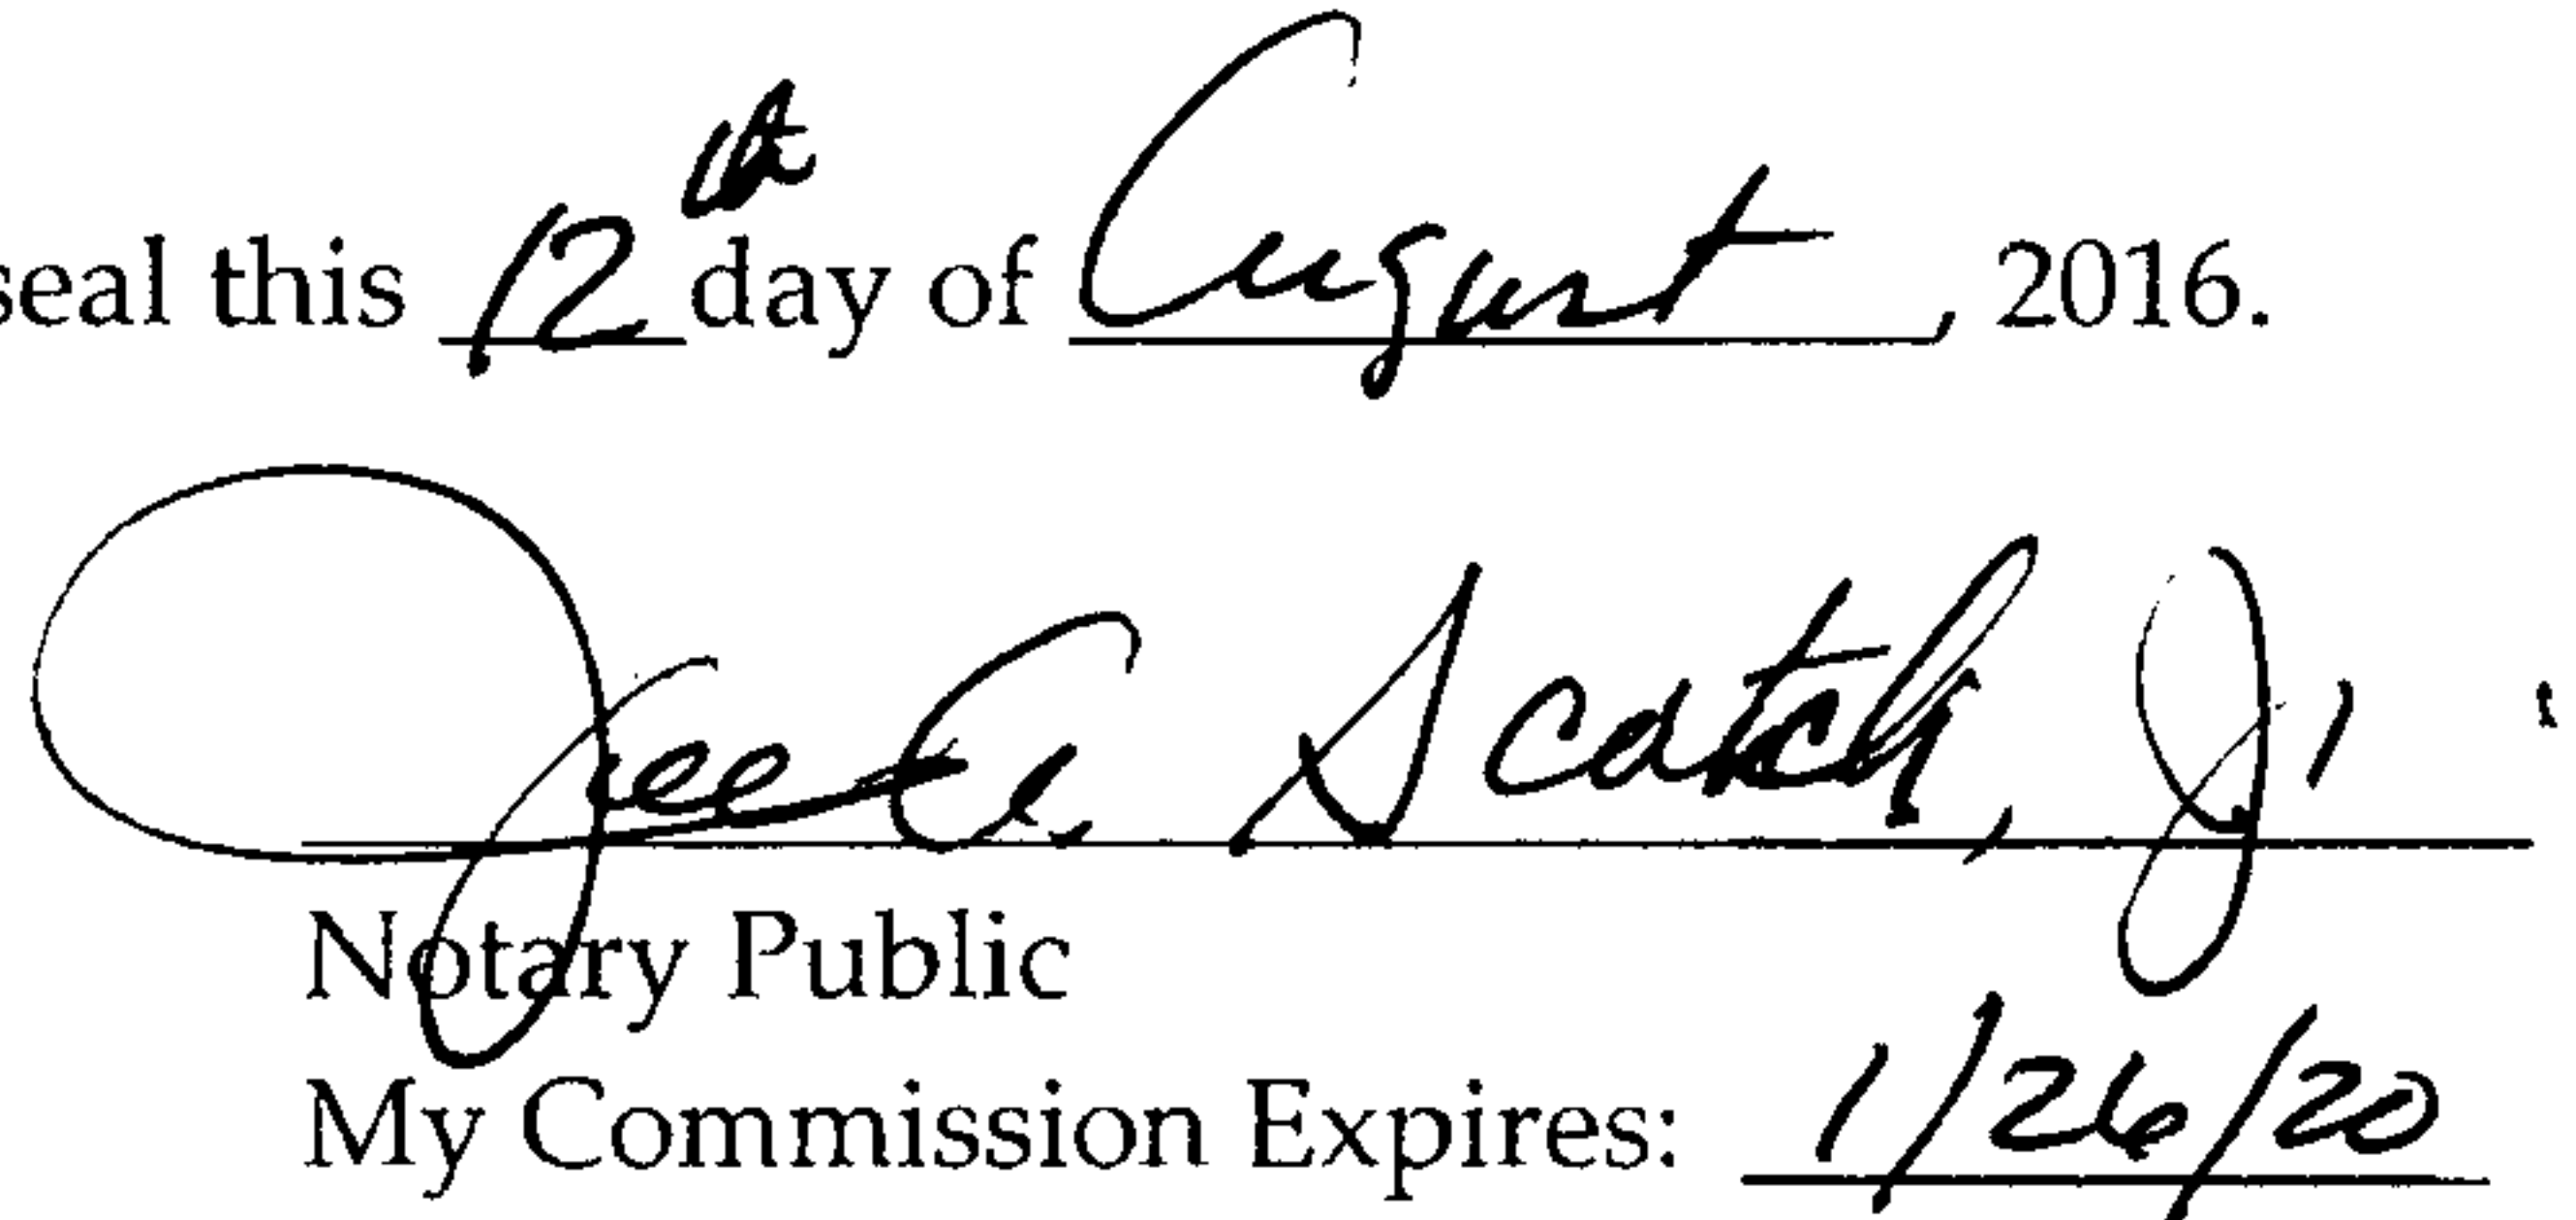 seal this 12th day of August, 2016.
A. Scotch, Jr
Notary Public
My Commission Expires: 1/26/20